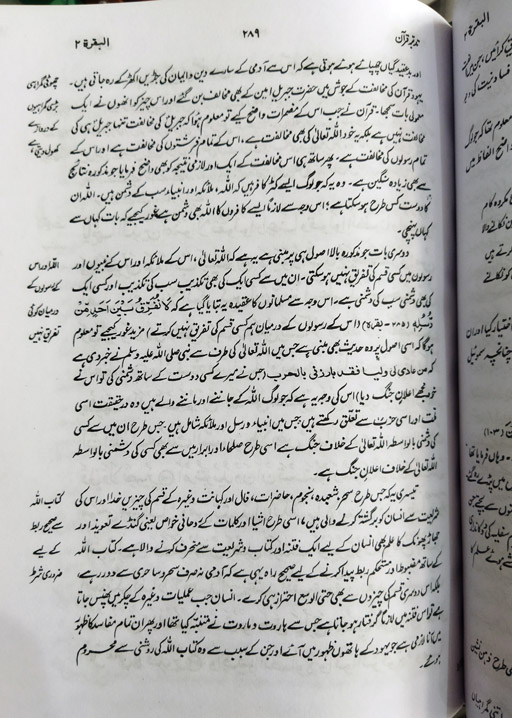 تدبر قرآن ۲۸۹ البقرة ۲
اور عقیدہ گیاں چھپائے ہوئے ہوتی ہے کہ اس سے آدمی کے سارے دین و ایمان کی جڑیں اکھڑ کے رہ جاتی ہیں۔
یہود قرآن کی مخالفت کے جوش میں حضرت جبریل امین کے بھی مخالف بن گئے اور اس چیز کو انھوں نے ایک
معمولی بات سمجھا۔ قرآن نے جب اس کے مضمرات واضح کیے تو معلوم ہوا کہ جبریل کی مخالفت تنہا جبریل ہی کی
مخالفت نہیں ہے بلکہ یہ خود اللہ تعالیٰ کی بھی مخالفت ہے، اس کے تمام فرشتوں کی مخالفت ہے اور اس کے
تمام رسولوں کی مخالفت ہے۔ پھر ساتھ ہی اس مخالفت کے ایک اور لازمی نتیجہ کو بھی واضح فرمایا جو مذکورہ نتائج
سے بھی زیادہ سنگین ہے۔ وہ یہ کہ جو لوگ ایسے کٹر کافر ہیں کہ اللہ، ملائکہ اور انبیاء سب کے دشمن ہیں۔ اللہ ان
کا دوست کس طرح ہو سکتا ہے؛ اس وجہ سے لازماً ایسے کافروں کا اللہ بھی دشمن ہے۔ غور کیجیے کہ بات کہاں سے
کہاں پہنچی۔
چھوٹی گمراہی
بڑی گمراہیوں
کے دروازے
کھول دیتی ہے
دوسری بات جو مذکورہ بالا اصول ہی پر مبنی ہے یہ ہے کہ اللہ تعالیٰ، اس کے ملائکہ اور اس کے نبیوں اور
رسولوں میں کسی قسم کی تفریق نہیں ہو سکتی۔ ان میں سے کسی ایک کی بھی تکذیب سب کی تکذیب اور کسی ایک
کی بھی دشمنی سب کی دشمنی ہے۔ اسی وجہ سے مسلمانوں کا عقیدہ یہ بتایا گیا ہے کہ لَا نُفَرِّقُ بَيْنَ أَحَدٍ مِّنْ
رُّسُلِهِ (۲۸۵ - بقرہ) (اس کے رسولوں کے درمیان ہم کسی قسم کی تفریق نہیں کرتے) مزید غور کیجیے تو معلوم
ہوگا کہ اسی اصول پر وہ حدیث بھی مبنی ہے جس میں اللہ تعالیٰ کی طرف سے نبی صلی اللہ علیہ وسلم نے خبر دی ہے
کہ من عادی لی ولیا فقد بارزنی بالحرب (جس نے میرے کسی دوست کے ساتھ دشمنی کی تو اس نے
خود مجھے اعلانِ جنگ دیا) اس کی وجہ یہ ہے کہ جو لوگ اللہ کے جاننے اور ماننے والے ہیں وہ درحقیقت اسی
امت اور اسی حزب سے تعلق رکھتے ہیں جس میں انبیاء و رسل اور ملائکہ شامل ہیں۔ جس طرح ان میں سے کسی
کی دشمنی بالواسطہ اللہ تعالیٰ کے خلاف جنگ ہے اسی طرح صلحاء اور ابرار میں سے بھی کسی کی دشمنی بالواسطہ
اللہ تعالیٰ کے خلاف اعلانِ جنگ ہے۔
اللہ اور اس
کے رسولوں کے
درمیان کوئی
تفریق نہیں
تیسری یہ کہ جس طرح سحر، شعبدہ، نجوم، حاضرات، فال اور کہانت وغیرہ کے قسم کی چیزیں خدا اور اس کی
شریعت سے انسان کو برگشتہ کرنے والی ہیں، اسی طرح اشیا اور کلمات کے روحانی خواص یعنی گنڈے تعویذ اور
جھاڑ پھونک کا علم بھی انسان کے لیے ایک فتنہ اور کتاب و شریعت سے منحرف کرنے والا ہے۔ کتاب اللہ
کے ساتھ مضبوط اور مستحکم ربط پیدا کرنے کے لیے صحیح راہ یہی ہے کہ آدمی نہ صرف سحر و ساحری سے دور رہے،
بلکہ اس دوسری قسم کی چیزوں سے بھی حتی الوسع احتراز ہی کرے۔ انسان جب عملیات وغیرہ کے چکر میں پھنس جاتا
ہے تو اس فتنہ میں لازماً گرفتار ہو جاتا ہے جس سے ہاروت و ماروت نے متنبہ کیا تھا اور پھر ان تمام مفاسد کا ظہور
میں آنا لازمی ہے جو یہود کے ہاتھوں ظہور میں آئے اور جن کے سبب سے وہ کتاب اللہ کی روشنی سے محروم
ہوئے۔
کتاب اللہ
سے صحیح ربط
کے لیے
ضروری شرط
البقرة ۲